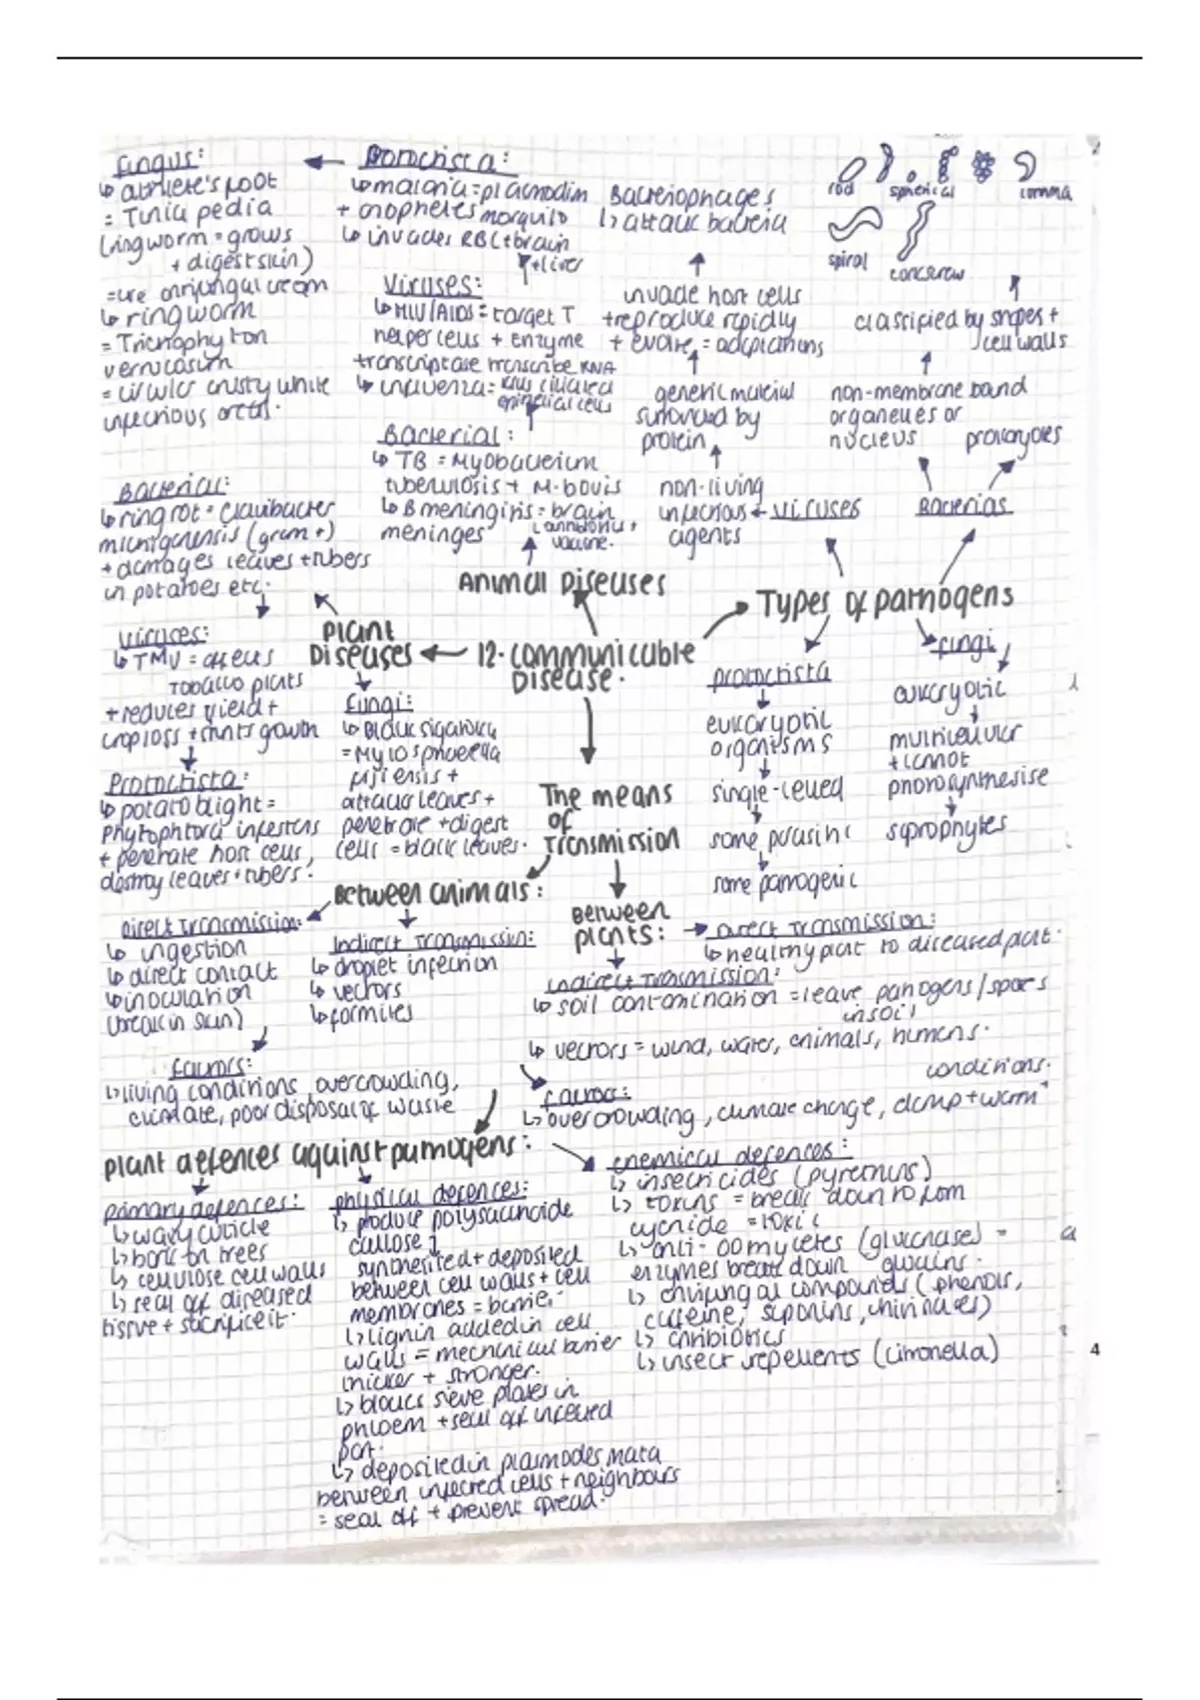 Fungus:
↳ athlete's foot
= Tinia pedia
(ringworm = grows
+ digest skin)
= use antifungal cream
↳ ringworm
= Trichophyton
verrucosum
= circular crusty white
infectious areas.
Protoctista:
↳ malaria = plasmodim
+ anopheles mosquito
↳ invades RBC + brain
+ liver
Viruses:
↳ HIV/AIDS = target T
helper cells + enzyme
transcriptase transcribe RNA
↳ influenza = kills ciliated
epithelial cells
Bacterial:
↳ TB = Myobacterium
tuberculosis + M. bovis
↳ B meningitis = brain
meninges
↳ antibiotics +
vaccine.
Animal Diseases
Bacteriophages
↳ attack bacteria
invade host cells
+ reproduce rapidly
+ evolve = adaptations
genetic material
surrounded by
protein
non-living
infectious
agents
viruses
rod
spherical
comma
spiral
corkscrew
classified by shapes +
cell walls
non-membrane bound
organelles or
nucleus
prokaryotes
Bacterias
Types of pathogens
Bacterial:
↳ ring rot = Clavibacter
michiganensis (gram +)
+ damages leaves + tubers
in potatoes etc.
viruses:
↳ TMV = affects
tobacco plants
+ reduces yield +
crop loss + stunts growth
Protoctista:
↳ potato blight =
Phytophtora infestens
+ penetrate host cells,
destroy leaves + tubers.
Plant
Diseases
12. Communicable
Disease.
Fungi:
↳ Black sigatoka
= Mycosphaerella
fijiensis +
attacks leaves +
penetrate + digest
cells = black leaves.
protoctista
eukaryotic
organisms
single-celled
some parasitic
some pathogenic
fungi
eukaryotic
multicellular
+ cannot
photosynthesise
saprophytes
The means
of
Transmission
Between animals:
Direct Transmission:
↳ ingestion
↳ direct contact
↳ inoculation
(break in skin)
Indirect Transmission:
↳ droplet infection
↳ vectors
↳ formites
factors:
↳ living conditions, overcrowding,
climate, poor disposal of waste
Between
plants:
Direct Transmission:
↳ healthy part to diseased part.
Indirect Transmission:
↳ soil contamination = leave pathogens/spores
in soil
↳ vectors = wind, water, animals, humens.
factors:
↳ overcrowding, climate change, damp + warm
conditions.
plant defences against pathogens:
primary defences:
↳ waxy cuticle
↳ bark on trees
↳ cellulose cell walls
↳ seal off diseased
tissue + sacrifice it.
physical defences:
↳ produce polysaccharide
callose
synthesised + deposited
between cell walls + cell
membranes = barrier
↳ lignin added in cell
walls = mechanical barrier
thicker + stronger.
↳ blocks sieve plates in
phloem + seal off infected
part.
↳ deposited in plasmodesmata
between infected cells + neighbours
= seal off + prevent spread.
chemical defences:
↳ insecticides (pyrethrins)
↳ toxins = break down to form
cycnide = toxic
↳ anti-oomycetes (glucanases) =
enzymes break down glucans.
↳ antifungal compounds (phenols,
caffeine, saponins, chitinases)
↳ antibiotics
↳ insect repellents (citronella)
4